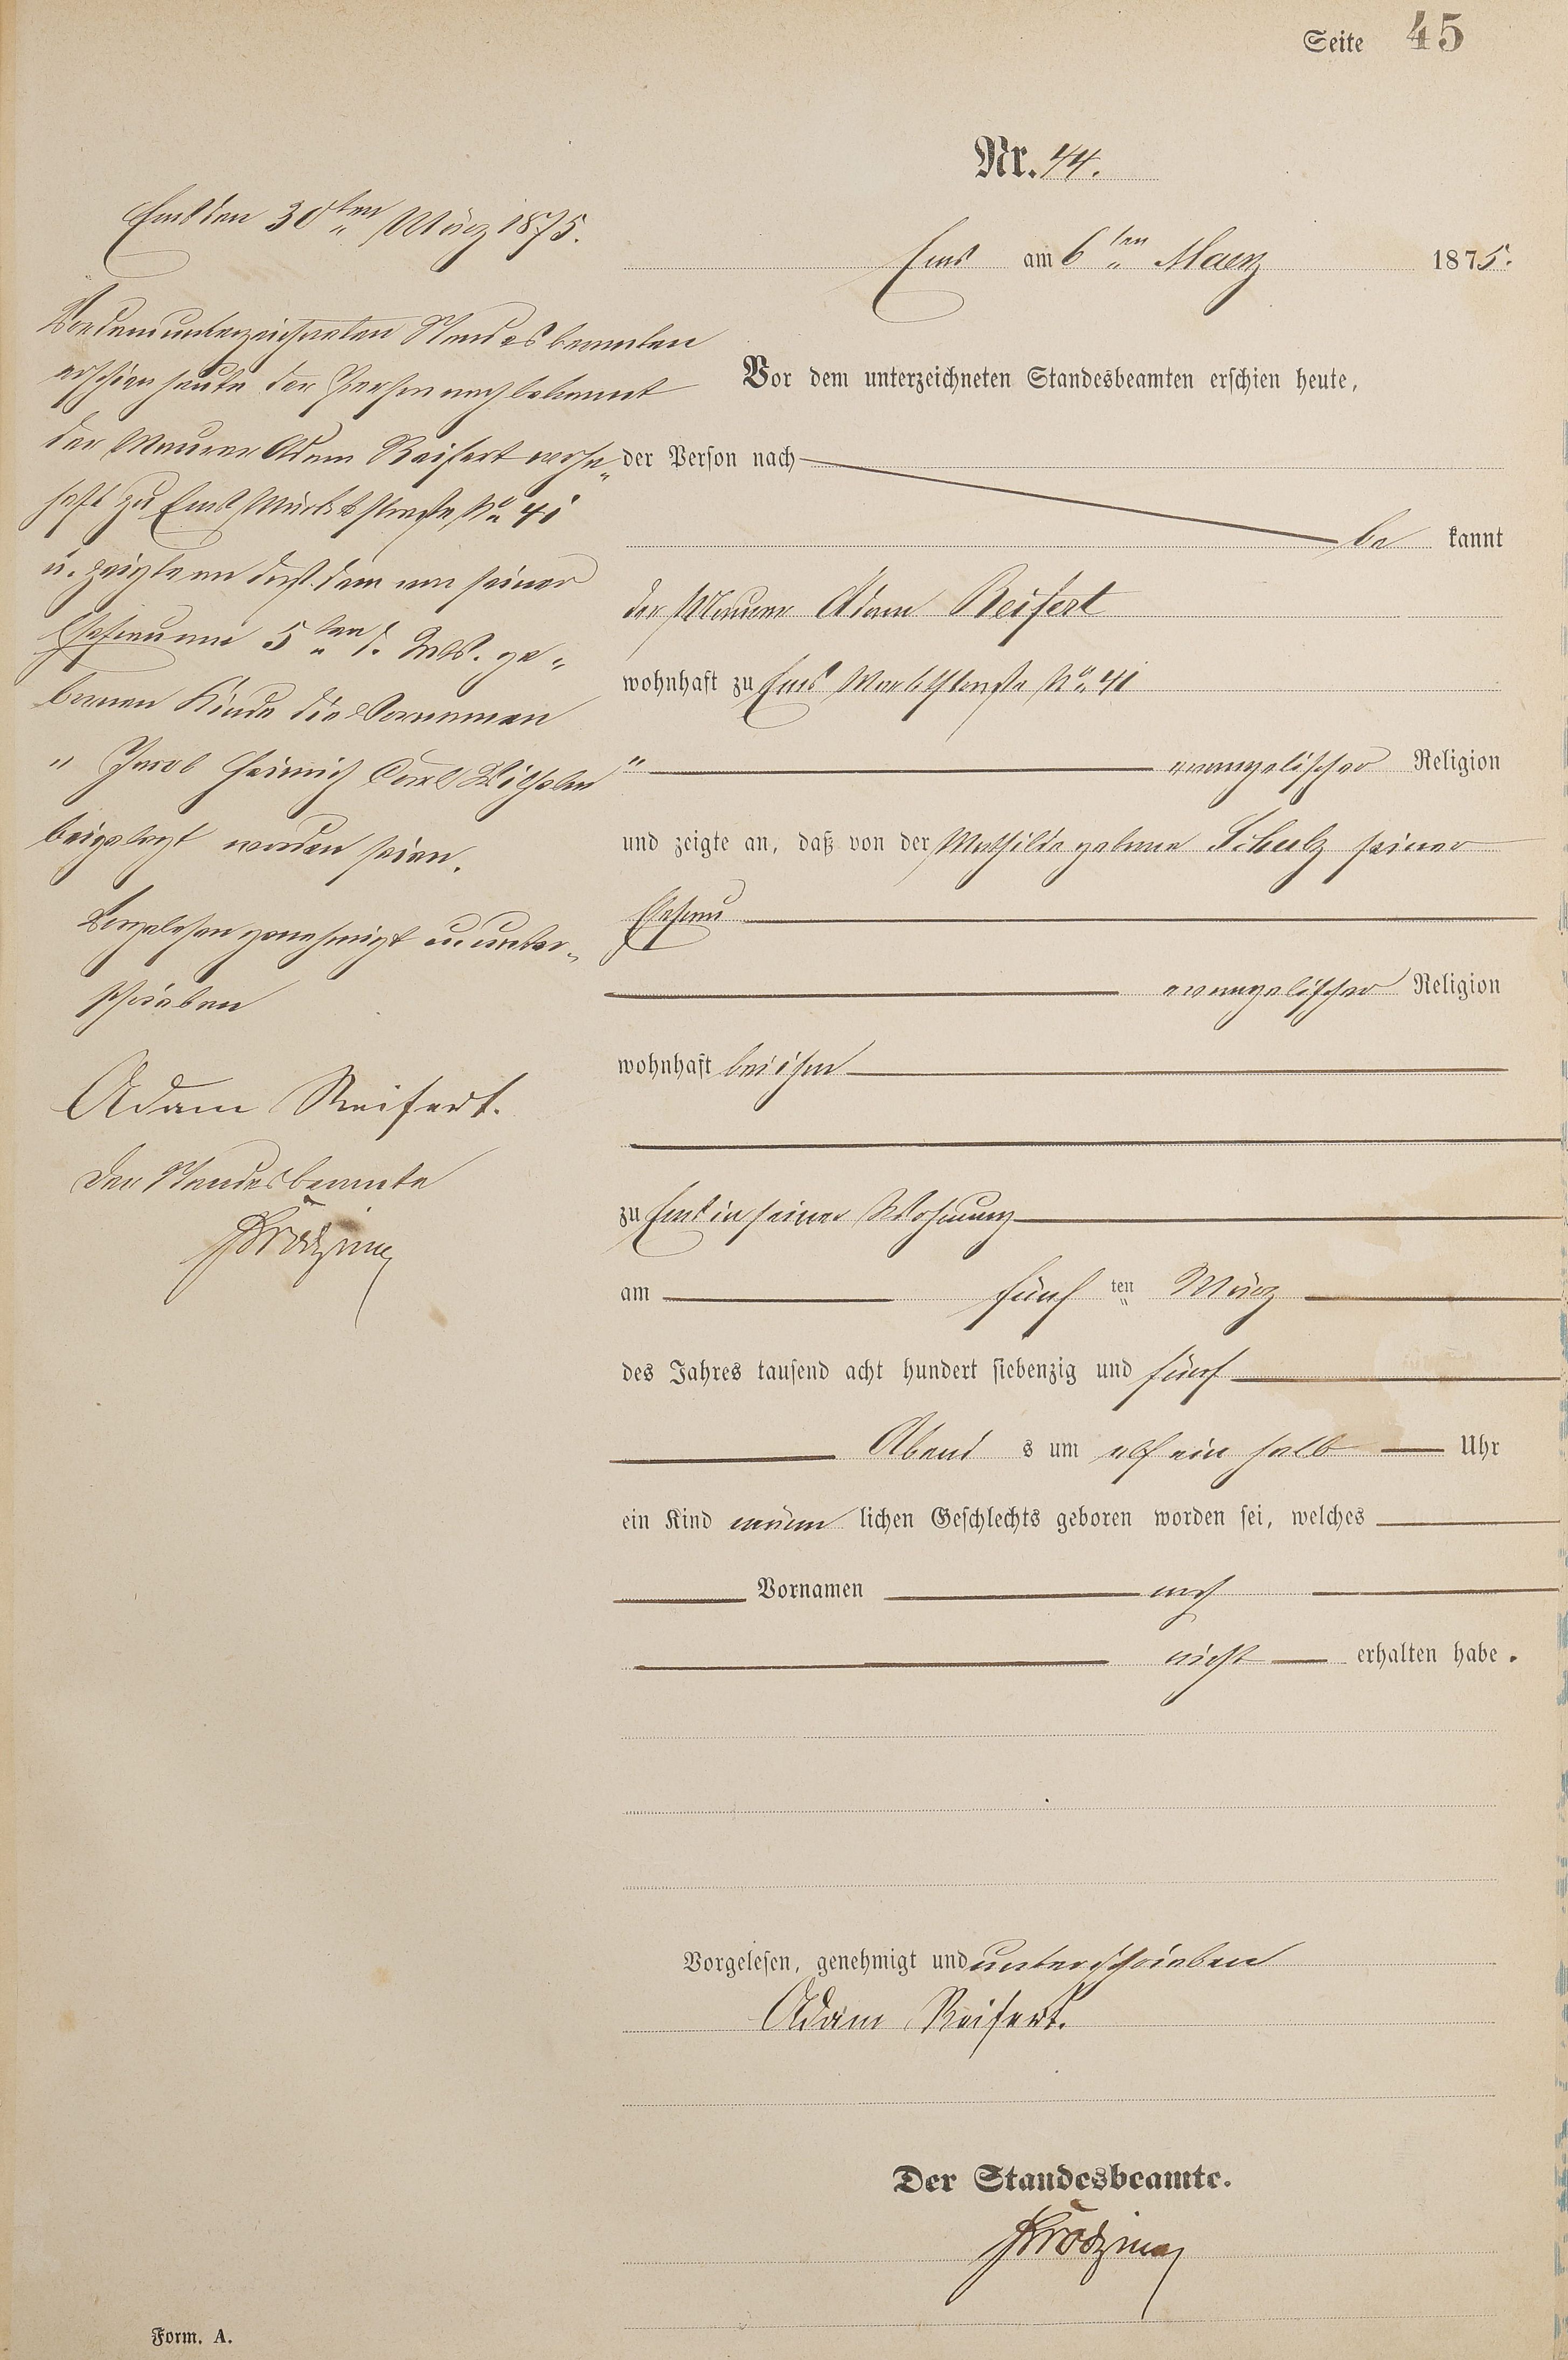 Seite 45
Nr. 44.
Ems am 6ten Maerz 1875.
Vor dem unterzeichneten Standesbeamten erschien heute,
der Person nach
be kannt
der Maurer Adam Reifert
wohnhaft zu Ems Marktstraße No 41
evangelischer Religion
und zeigte an, daß von der Mathilde geborne Schulz seiner
Ehefrau
evangelischer Religion
wohnhaft bei ihm
zu Ems in seiner Wohnung
am fünf ten März
des Jahres tausend acht hundert siebenzig und fünf
Abend s um elf ein halb Uhr
ein Kind männ lichen Geschlechts geboren worden sei, welches
Vornamen noch
nicht erhalten habe.
Vorgelesen, genehmigt und unterschrieben
Adam Reifert.
Der Standesbeamte.
Ems den 30ten März 1875.
Vor dem unterzeichneten Standesbeamten
erschien heute der Person nach bekannt
der Maurer Adam Reifert wohn-
haft zu Ems Marktstraße No 41
u. zeigte an daß dem von seiner
Ehefrau am 5ten d. Mts. ge-
bornen Kinde die Vornamen
" Jacob Heinrich Carl Wilhelm "
beigelegt worden seien.
Vorgelesen genehmigt u. unter-
schrieben
Adam Reifert.
Der Standesbeamte
Form. A.